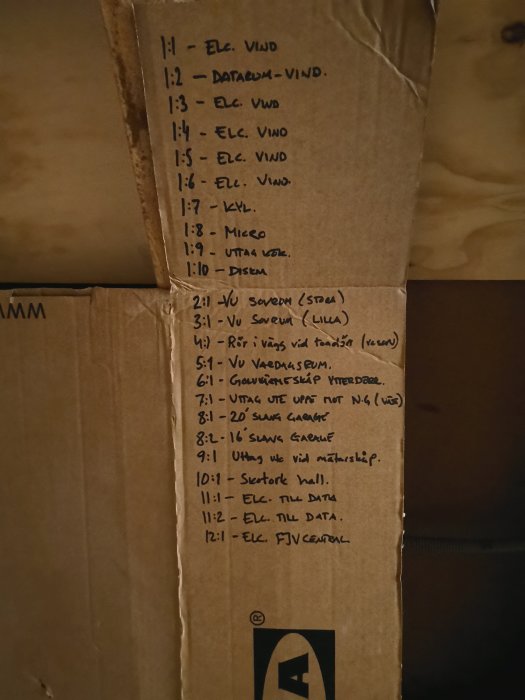 1:1 - ELC. VIND
1:2 - DATARUM-VIND.
1:3 - ELC. VIND
1:4 - ELC. VIND
1:5 - ELC. VIND
1:6 - ELC. VIND.
1:7 - KYL.
1:8 - MICRO
1:9 - UTTAG KÖK.
1:10 - DISKM
MM
2:1 - VU SOVRUM (STORA)
3:1 - VU SOVRUM (LILLA)
4:1 - Rör i vägg vid
5:1 - VU VARDAGSRUM.
6:1 - GOLVVÄRMESKÅP YTTERDÖRR.
7:1 - UTTAG UTE UPPE MOT N-G
8:1 - 20' SLANG GARAGE
8:2 - 16' SLANG GARAGE
9:1 Uttag ute vid mätarskåp.
10:1 - Skotork hall.
11:1 - ELC. TILL DATA
11:2 - ELC. TILL DATA.
12:1 - ELC. FJVCENTRAL
®
A